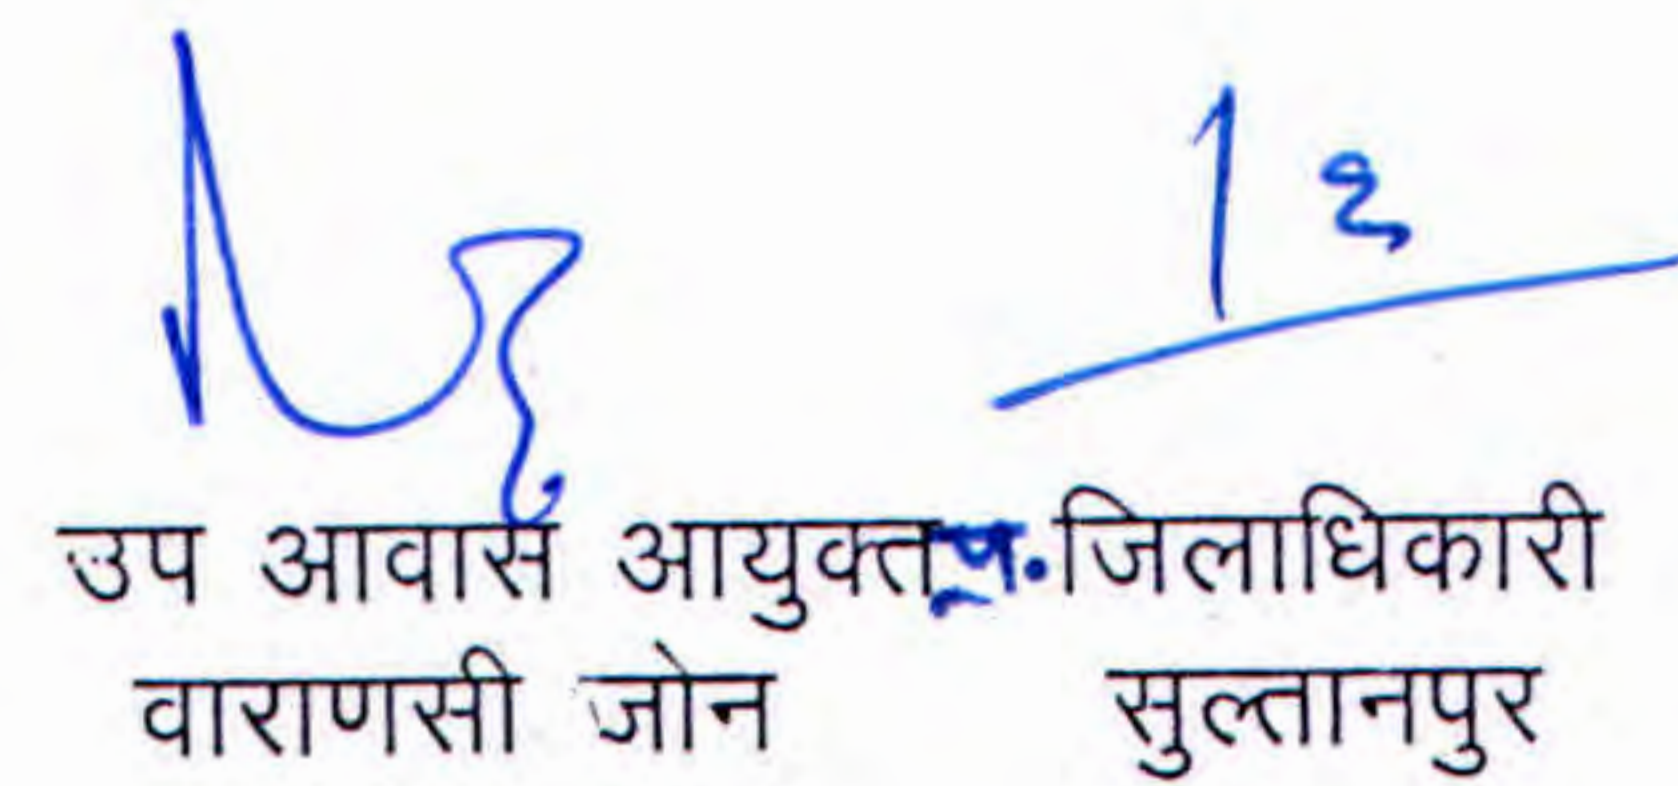 उप आवास आयुक्त
जिलाधिकारी
वाराणसी जोन
सुल्तानपुर